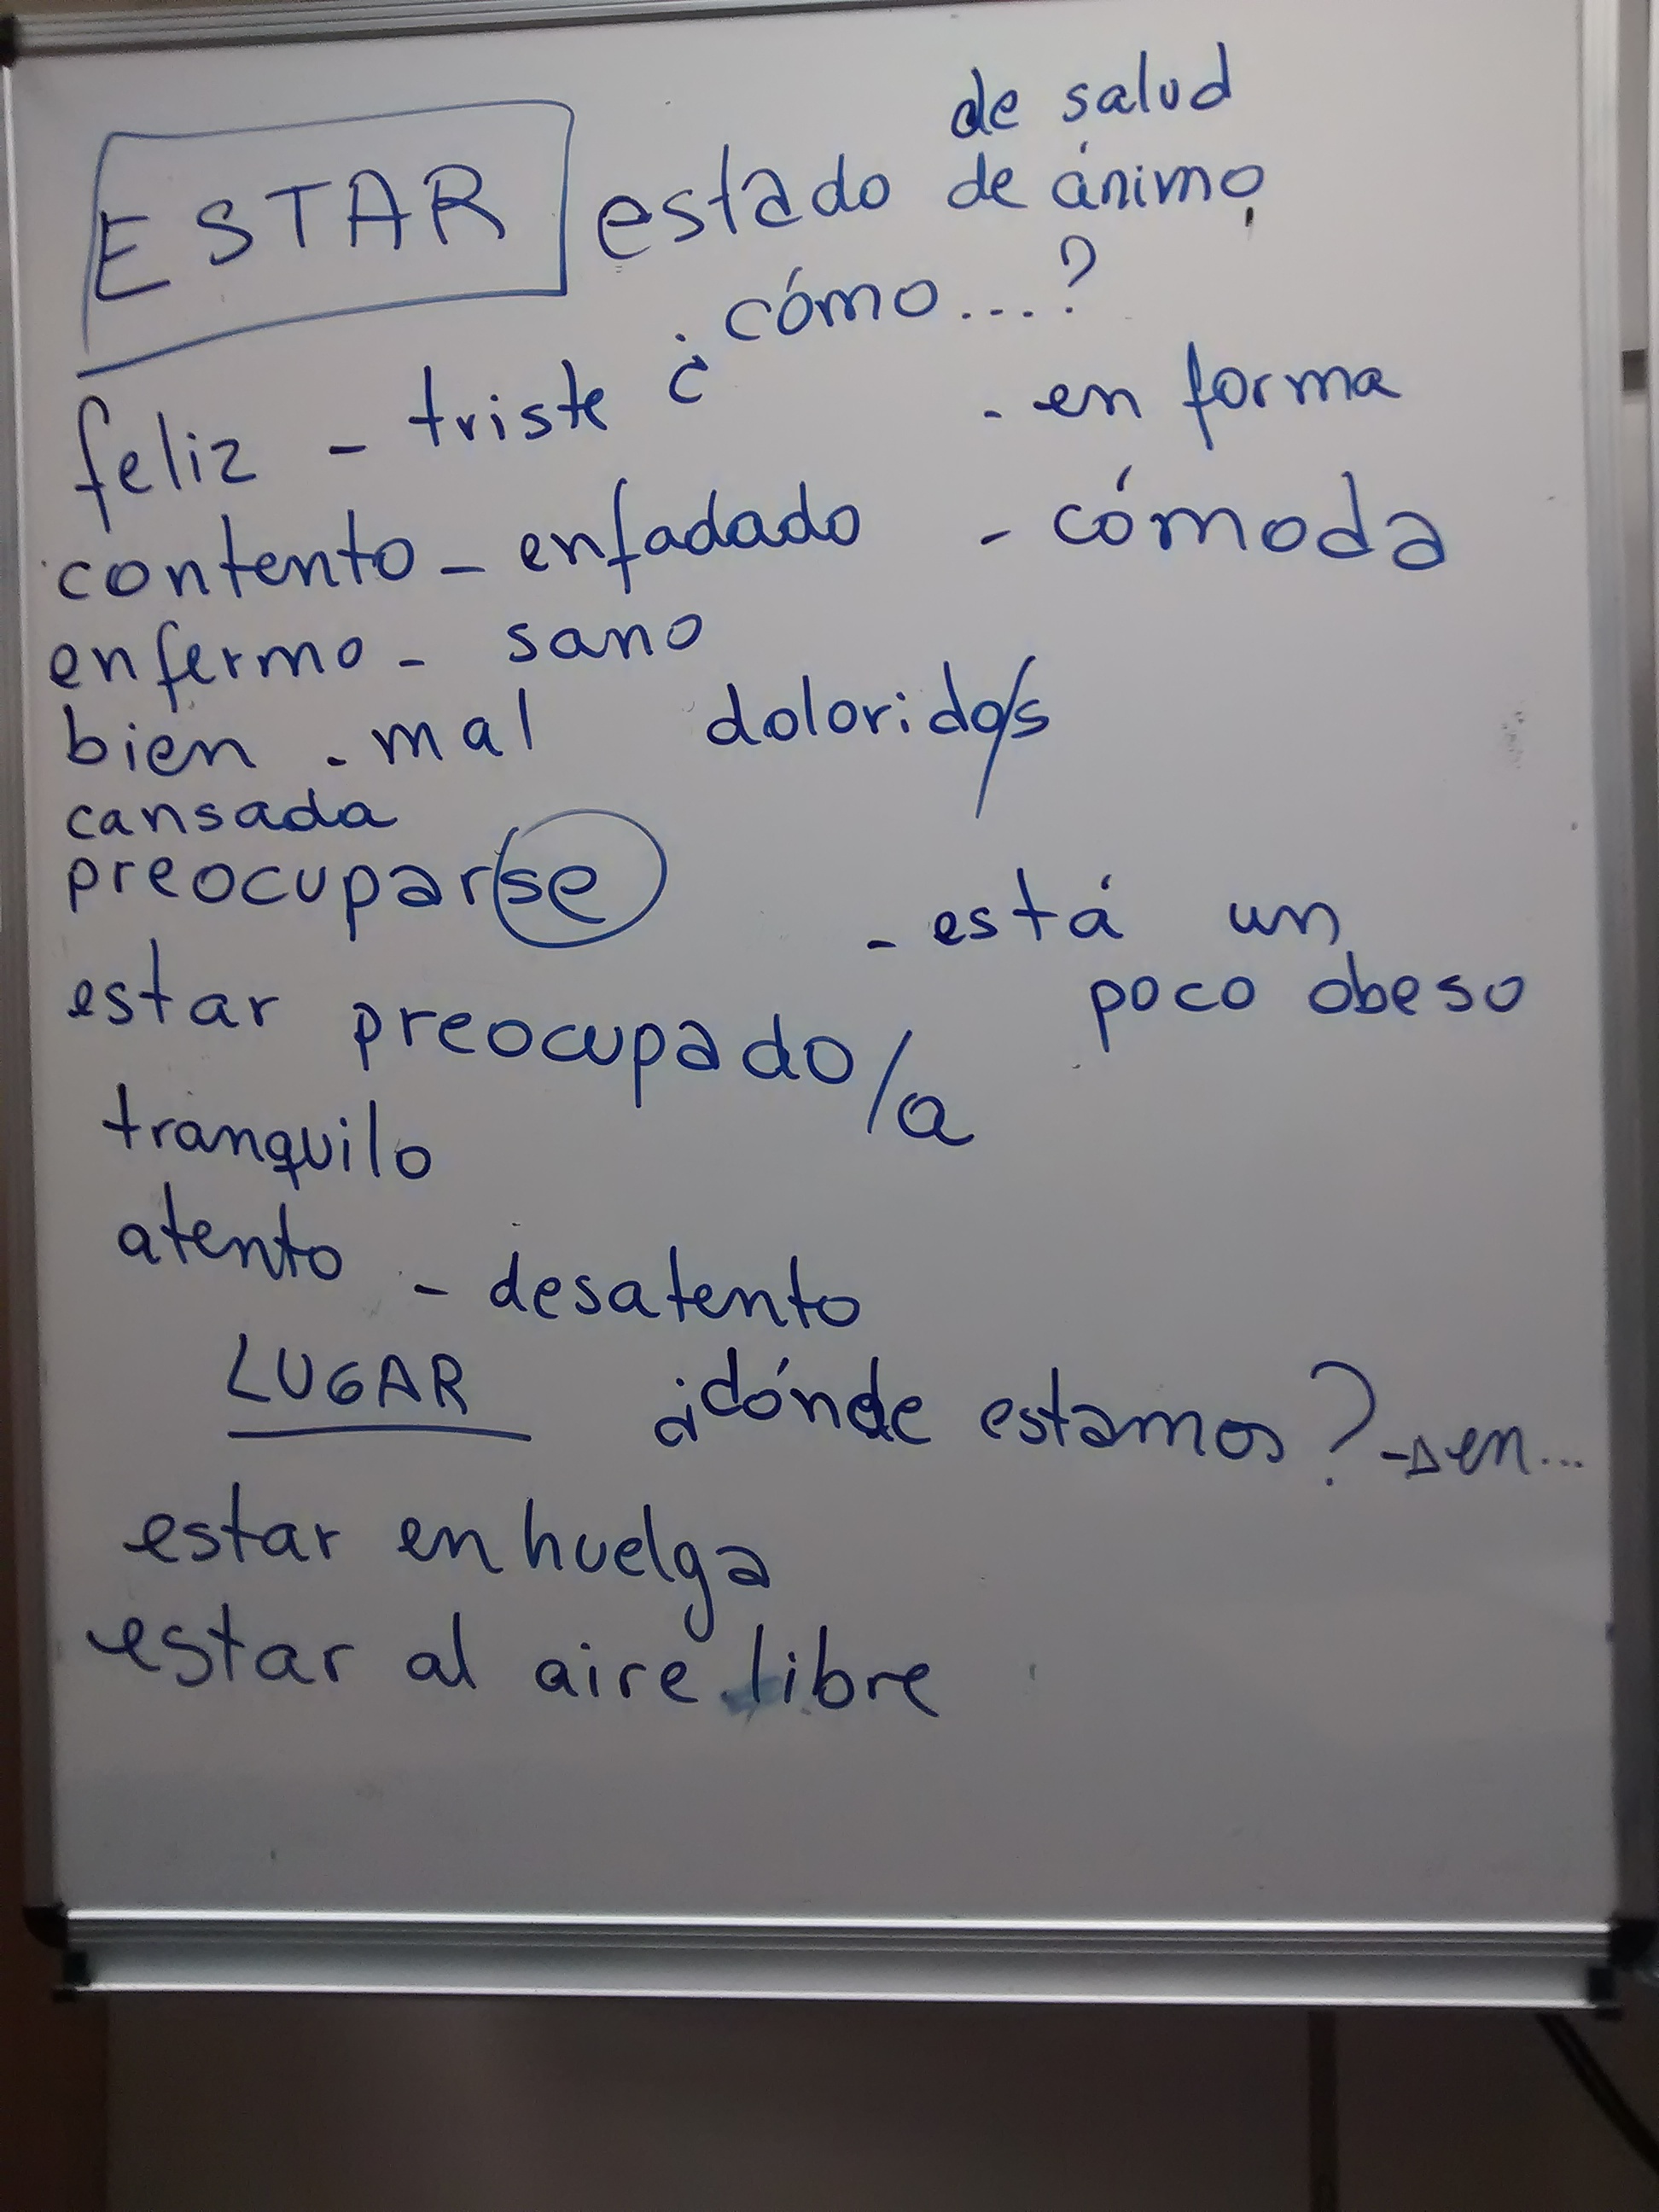 de salud
ESTAR estado de ánimo
¿cómo....?
feliz - triste - en forma
contento - enfadado - cómoda
enfermo - sano
bien - mal dolorido/s
cansada
preocuparse
- está un
poco obeso
estar preocupado/a
tranquilo
atento - desatento
LUGAR ¿dónde estamos? → en...
estar en huelga
estar al aire libre